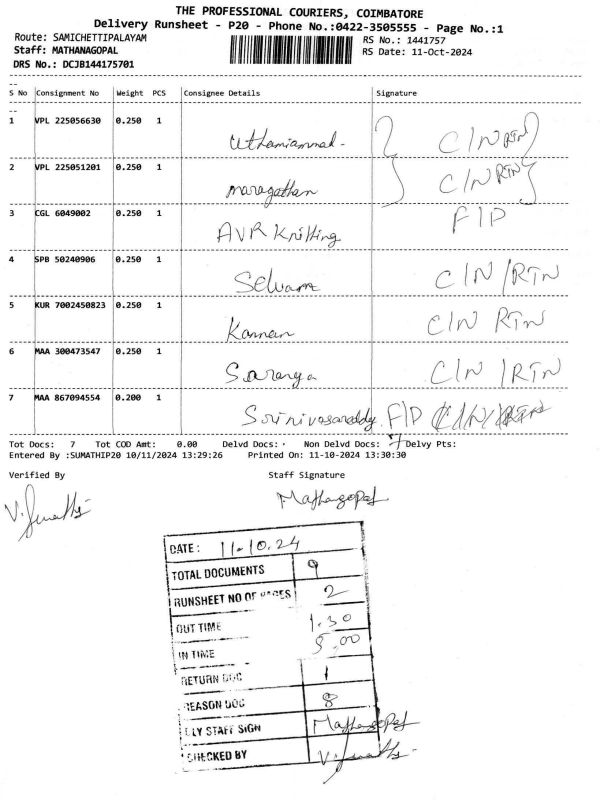 THE PROFESSIONAL COURIERS, COIMBATORE
Delivery Runsheet - P20 - Phone No.:0422-3505555 - Page No.:1
Route: SAMICHETTIPALAYAM RS No.: 1441757
Staff: MATHANAGOPAL RS Date: 11-Oct-2024
DRS No.: DCJB144175701
S No Consignment No Weight PCS Consignee Details Signature
1 VPL 225056630 0.250 1
Uthamiammal- C/N RTN
2 VPL 225051201 0.250 1
maragatham C/N RTN
3 CGL 6049002 0.250 1 F/P
AVR Knitting
4 SPB 50240906 0.250 1
Selvam C/N/RTN
5 KUR 7002450823 0.250 1
Kannan C/N RTN
6 MAA 300473547 0.250 1
Saranya C/N/RTN
7 MAA 867094554 0.200 1
Srinivasareddy F/P C/N/RTN
Tot Docs: 7 Tot COD Amt: 0.00 Delvd Docs: Non Delvd Docs: 7 Delvy Pts:
Entered By :SUMATHIP20 10/11/2024 13:29:26 Printed On: 11-10-2024 13:30:30
Verified By Staff Signature
V. Sumathi Mathagopal
DATE : 11.10.24
TOTAL DOCUMENTS 9
RUNSHEET NO OF PAGES 2
OUT TIME 1.30
IN TIME 5.00
RETURN DOC 1
REASON DOC 8
DLY STAFF SIGN Mathagopal
CHECKED BY V. Sumathi